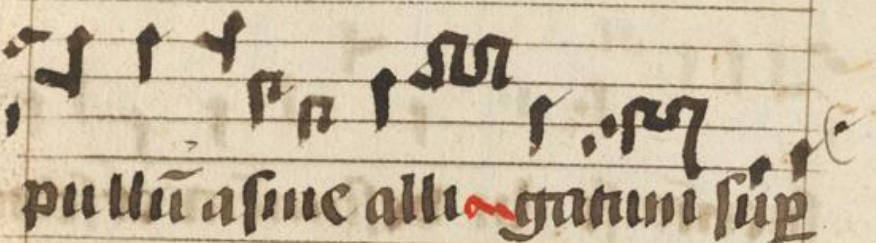 pullū asine alli gatum sup̲